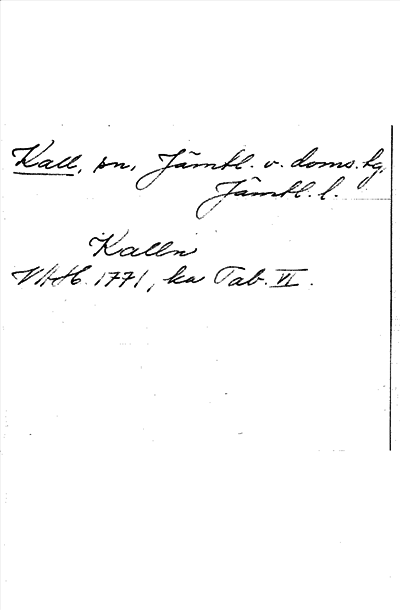 Kall, sn, Jämtl. v. doms.tg,
Jämtl. l.
Kalln
VAH. 1771, ka Tab. VI.